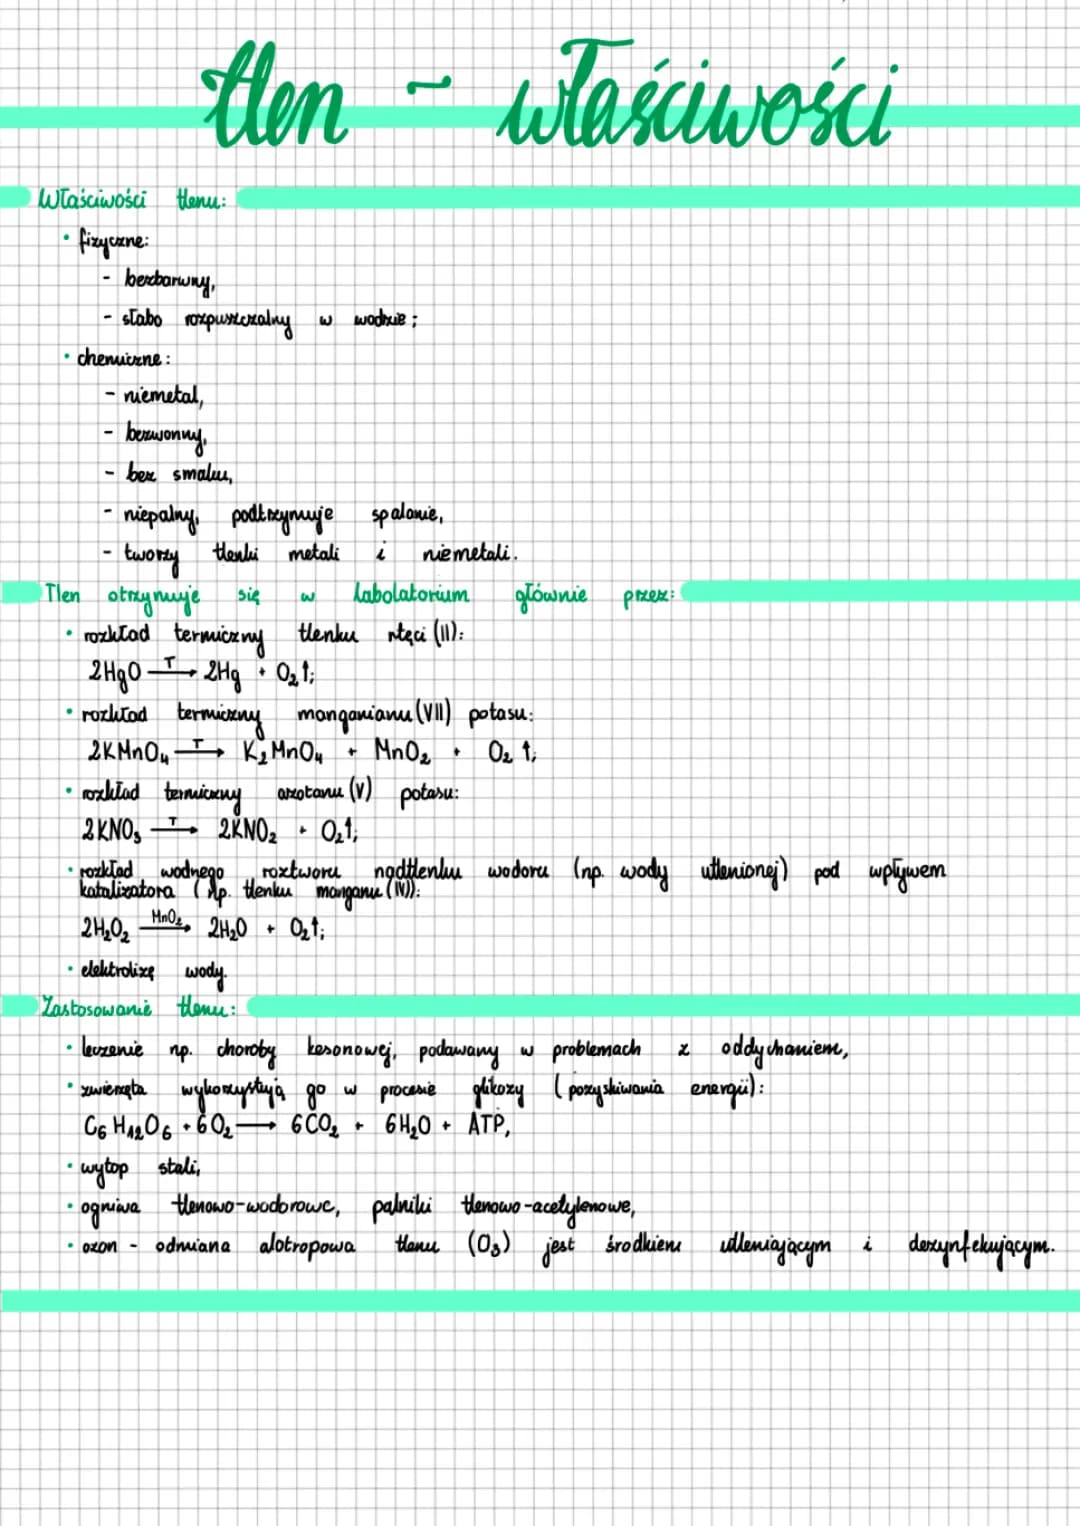 tlen - właściwości
Właściwości tlenu:
• fizyczne:
- bezbarwny,
- słabo rozpuszczalny w wodzie;
• chemiczne:
- niemetal,
- bezwonny,
- bez smaku,
- niepalny, podtrzymuje spalanie,
- tworzy tlenki metali i niemetali.
Tlen otrzymuje się w labolatorium głównie przez:
• rozkład termiczny tlenku rtęci (II):
2HgO —T→ 2Hg + O₂↑;
• rozkład termiczny manganianu (VII) potasu:
2KMnO₄ —T→ K₂MnO₄ + MnO₂ + O₂↑;
• rozkład termiczny azotanu (V) potasu:
2KNO₃ —T→ 2KNO₂ + O₂↑;
• rozkład wodnego roztworu nadtlenku wodoru (np. wody utlenionej) pod wpływem
katalizatora (np. tlenku manganu (IV)):
2H₂O₂ —MnO₂→ 2H₂O + O₂↑;
• elektrolizę wody.
Zastosowanie tlenu:
• leczenie np. choroby kesonowej, podawany w problemach z oddychaniem,
• zwierzęta wykorzystują go w procesie glikozy (pozyskiwania energii):
C₆H₁₂O₆ + 6O₂ → 6CO₂ + 6H₂O + ATP,
• wytop stali,
• ogniwa tlenowo-wodorowe, palniki tlenowo-acetylenowe,
• ozon - odmiana alotropowa tlenu (O₃) jest środkiem utleniającym i dezynfekującym.